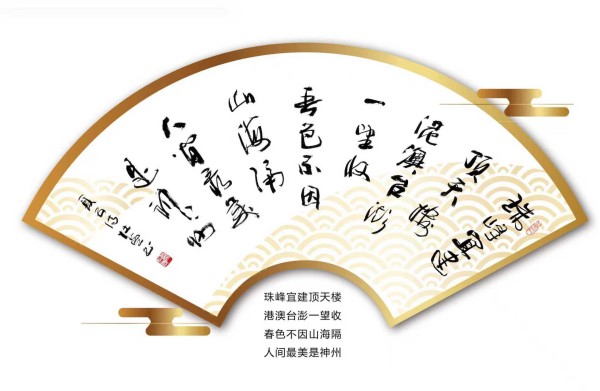 珠峰宜建
顶天楼
港澳台澎
一望收
春色不因
山海隔
人间最美
是神州
珠峰宜建顶天楼
港澳台澎一望收
春色不因山海隔
人间最美是神州